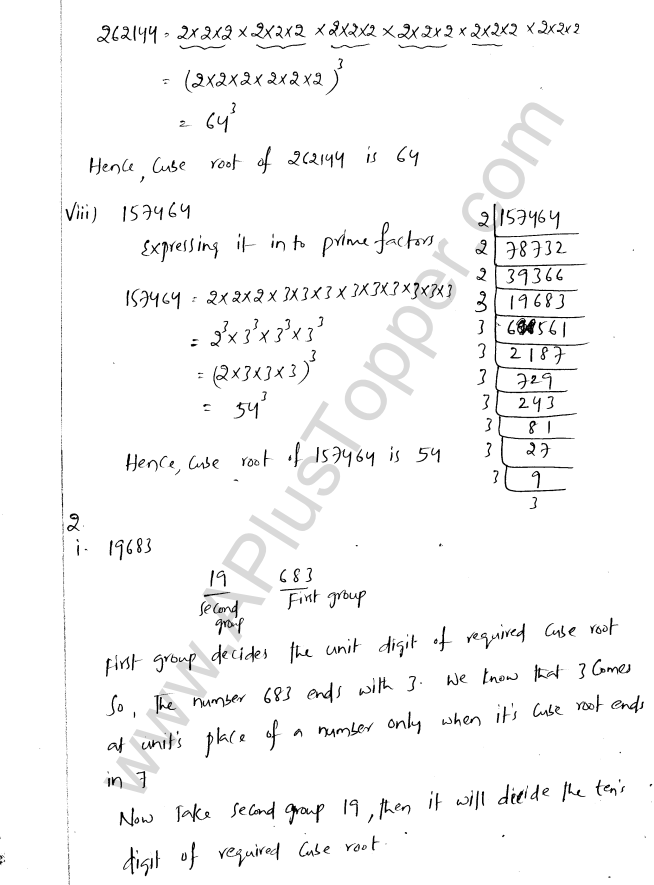 262144 = 2×2×2 × 2×2×2 × 2×2×2 × 2×2×2 × 2×2×2 × 2×2×2
= (2×2×2×2×2×2)³
= 64³
Hence, Cube root of 262144 is 64
Viii) 157464
Expressing it in to prime factors
157464 = 2×2×2 × 3×3×3 × 3×3×3×3×3×3
= 2³ × 3³ × 3³ × 3³
= (2×3×3×3)³
= 54³
Hence, Cube root of 157464 is 54
2 157464
2 78732
2 39366
3 19683
3 6561
3 2187
3 729
3 243
3 81
3 27
3 9
3
2.
i. 19683
19 683
Second group First group
First group decides the unit digit of required Cube root
So, The number 683 ends with 3. We know that 3 Comes
at unit's place of a number only when it's Cube root ends
in 7
Now Take Second group 19, then it will decide the ten's
digit of required Cube root.
www.APlusTopper.com